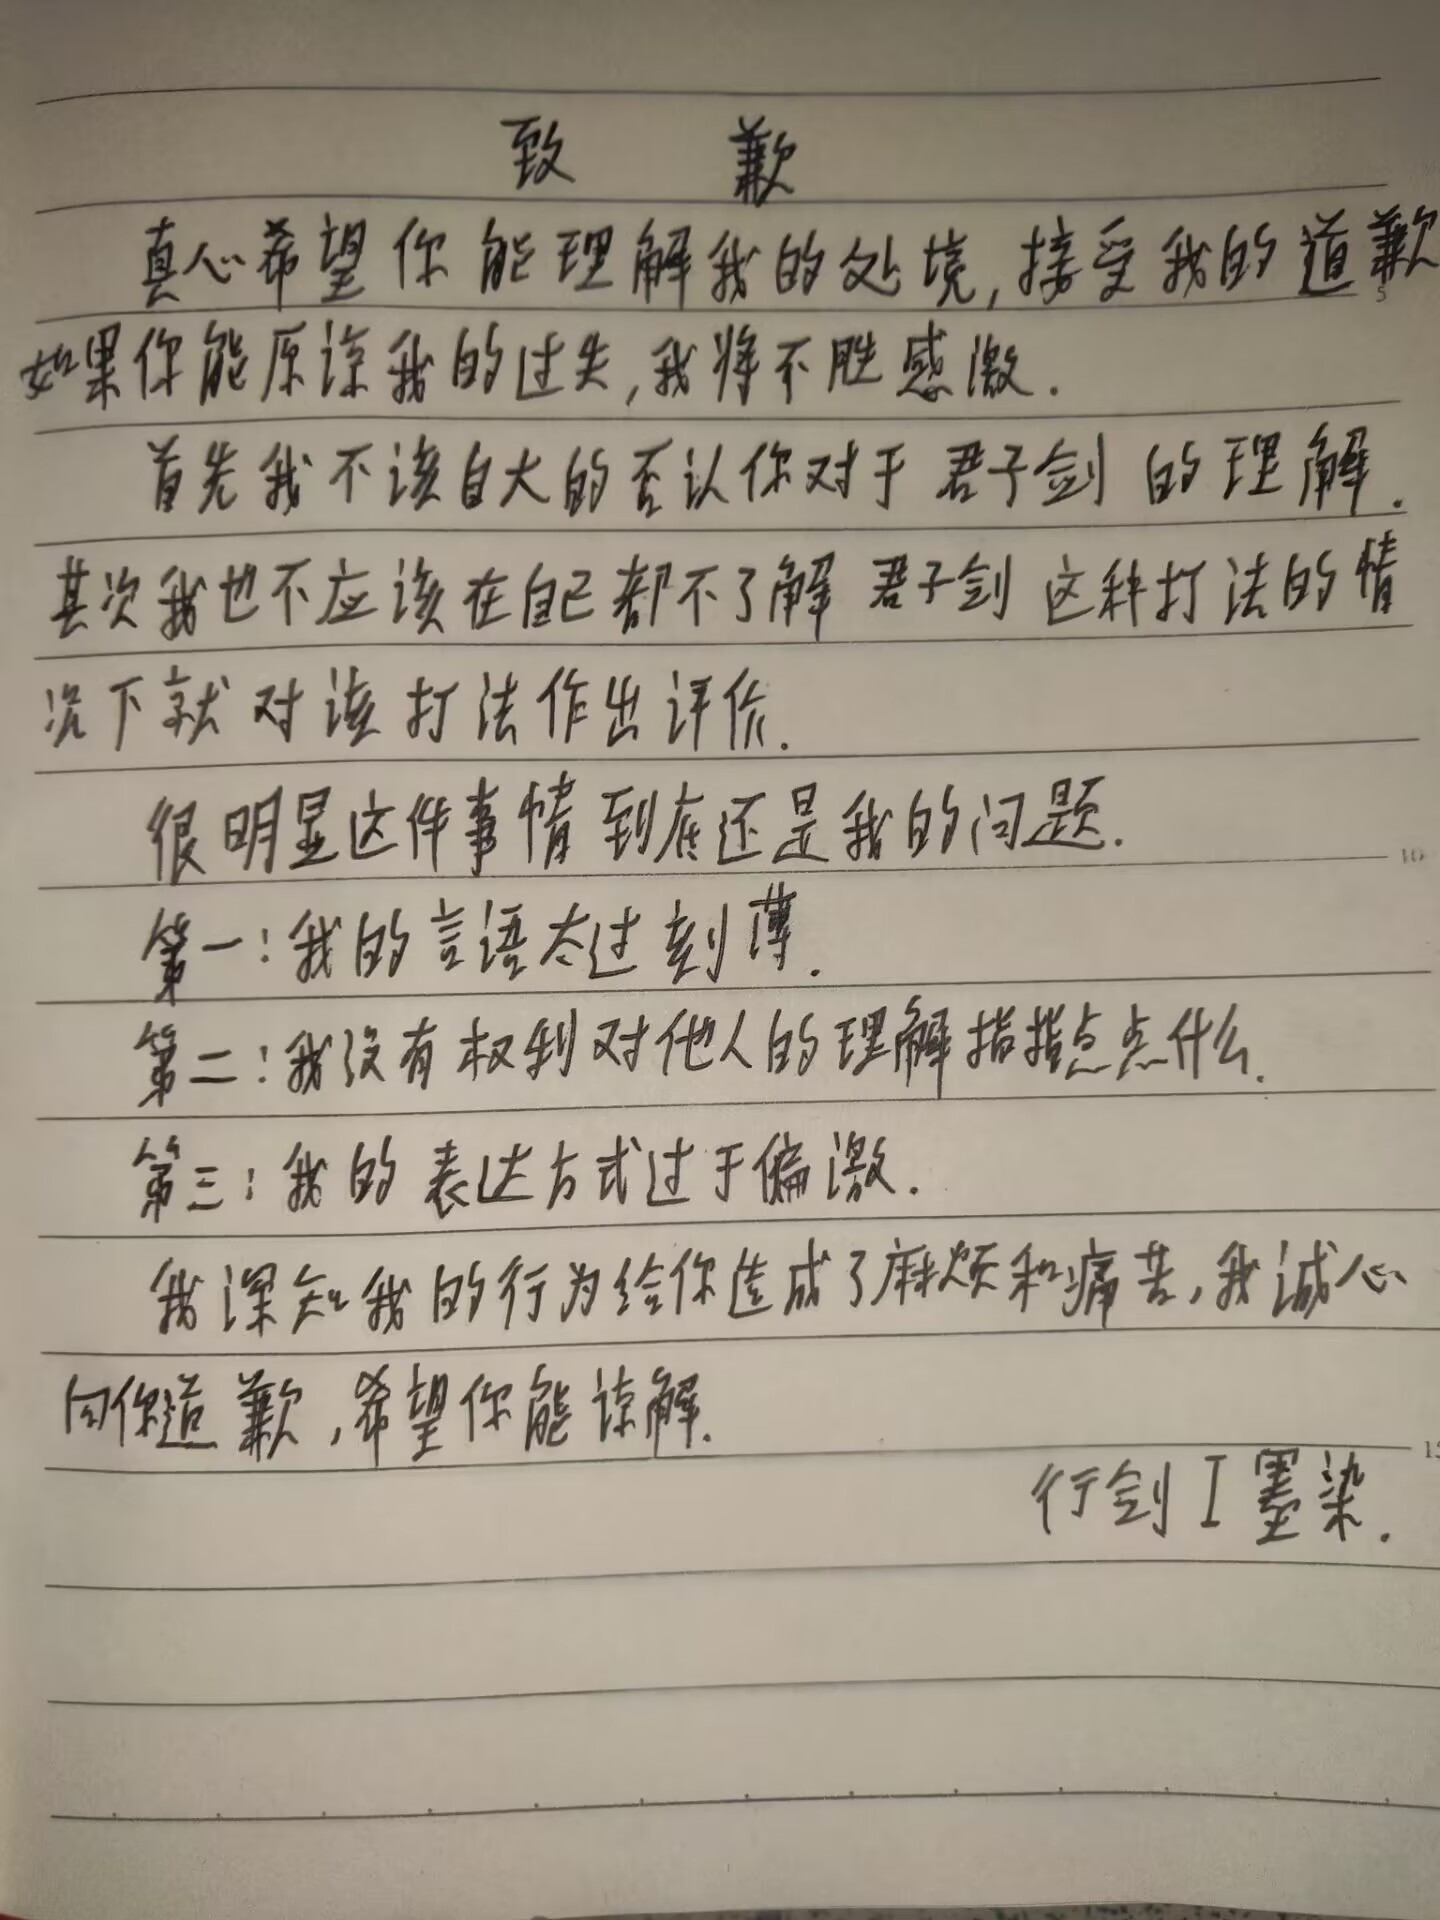 致 歉
真心希望你能理解我的处境,接受我的道歉
如果你能原谅我的过失,我将不胜感激.
首先我不该自大的否认你对于君子剑的理解.
其次我也不应该在自己都不了解君子剑这种打法的情
况下就对该打法作出评价.
很明显这件事情到底还是我的问题.
第一:我的言语太过刻薄.
第二:我没有权利对他人的理解指指点点什么.
第三:我的表达方式过于偏激.
我深知我的行为给你造成了麻烦和痛苦,我诚心
向你道歉,希望你能谅解.
行剑I墨染.
5
10
15